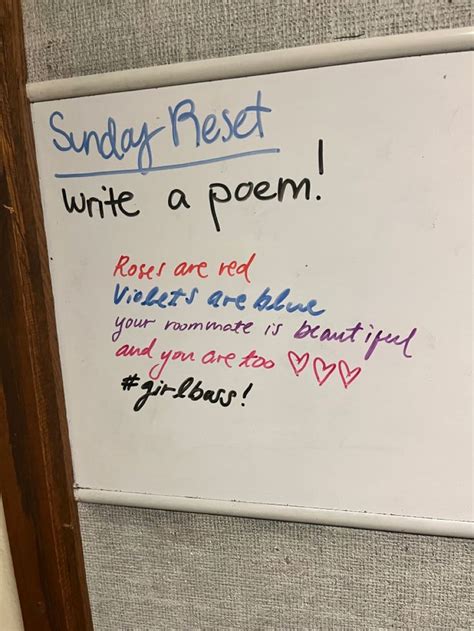 Sunday Reset
Write a poem!
Roses are red
Violets are blue
your roommate is beautiful
and you are too ♡♡♡
#girlboss!